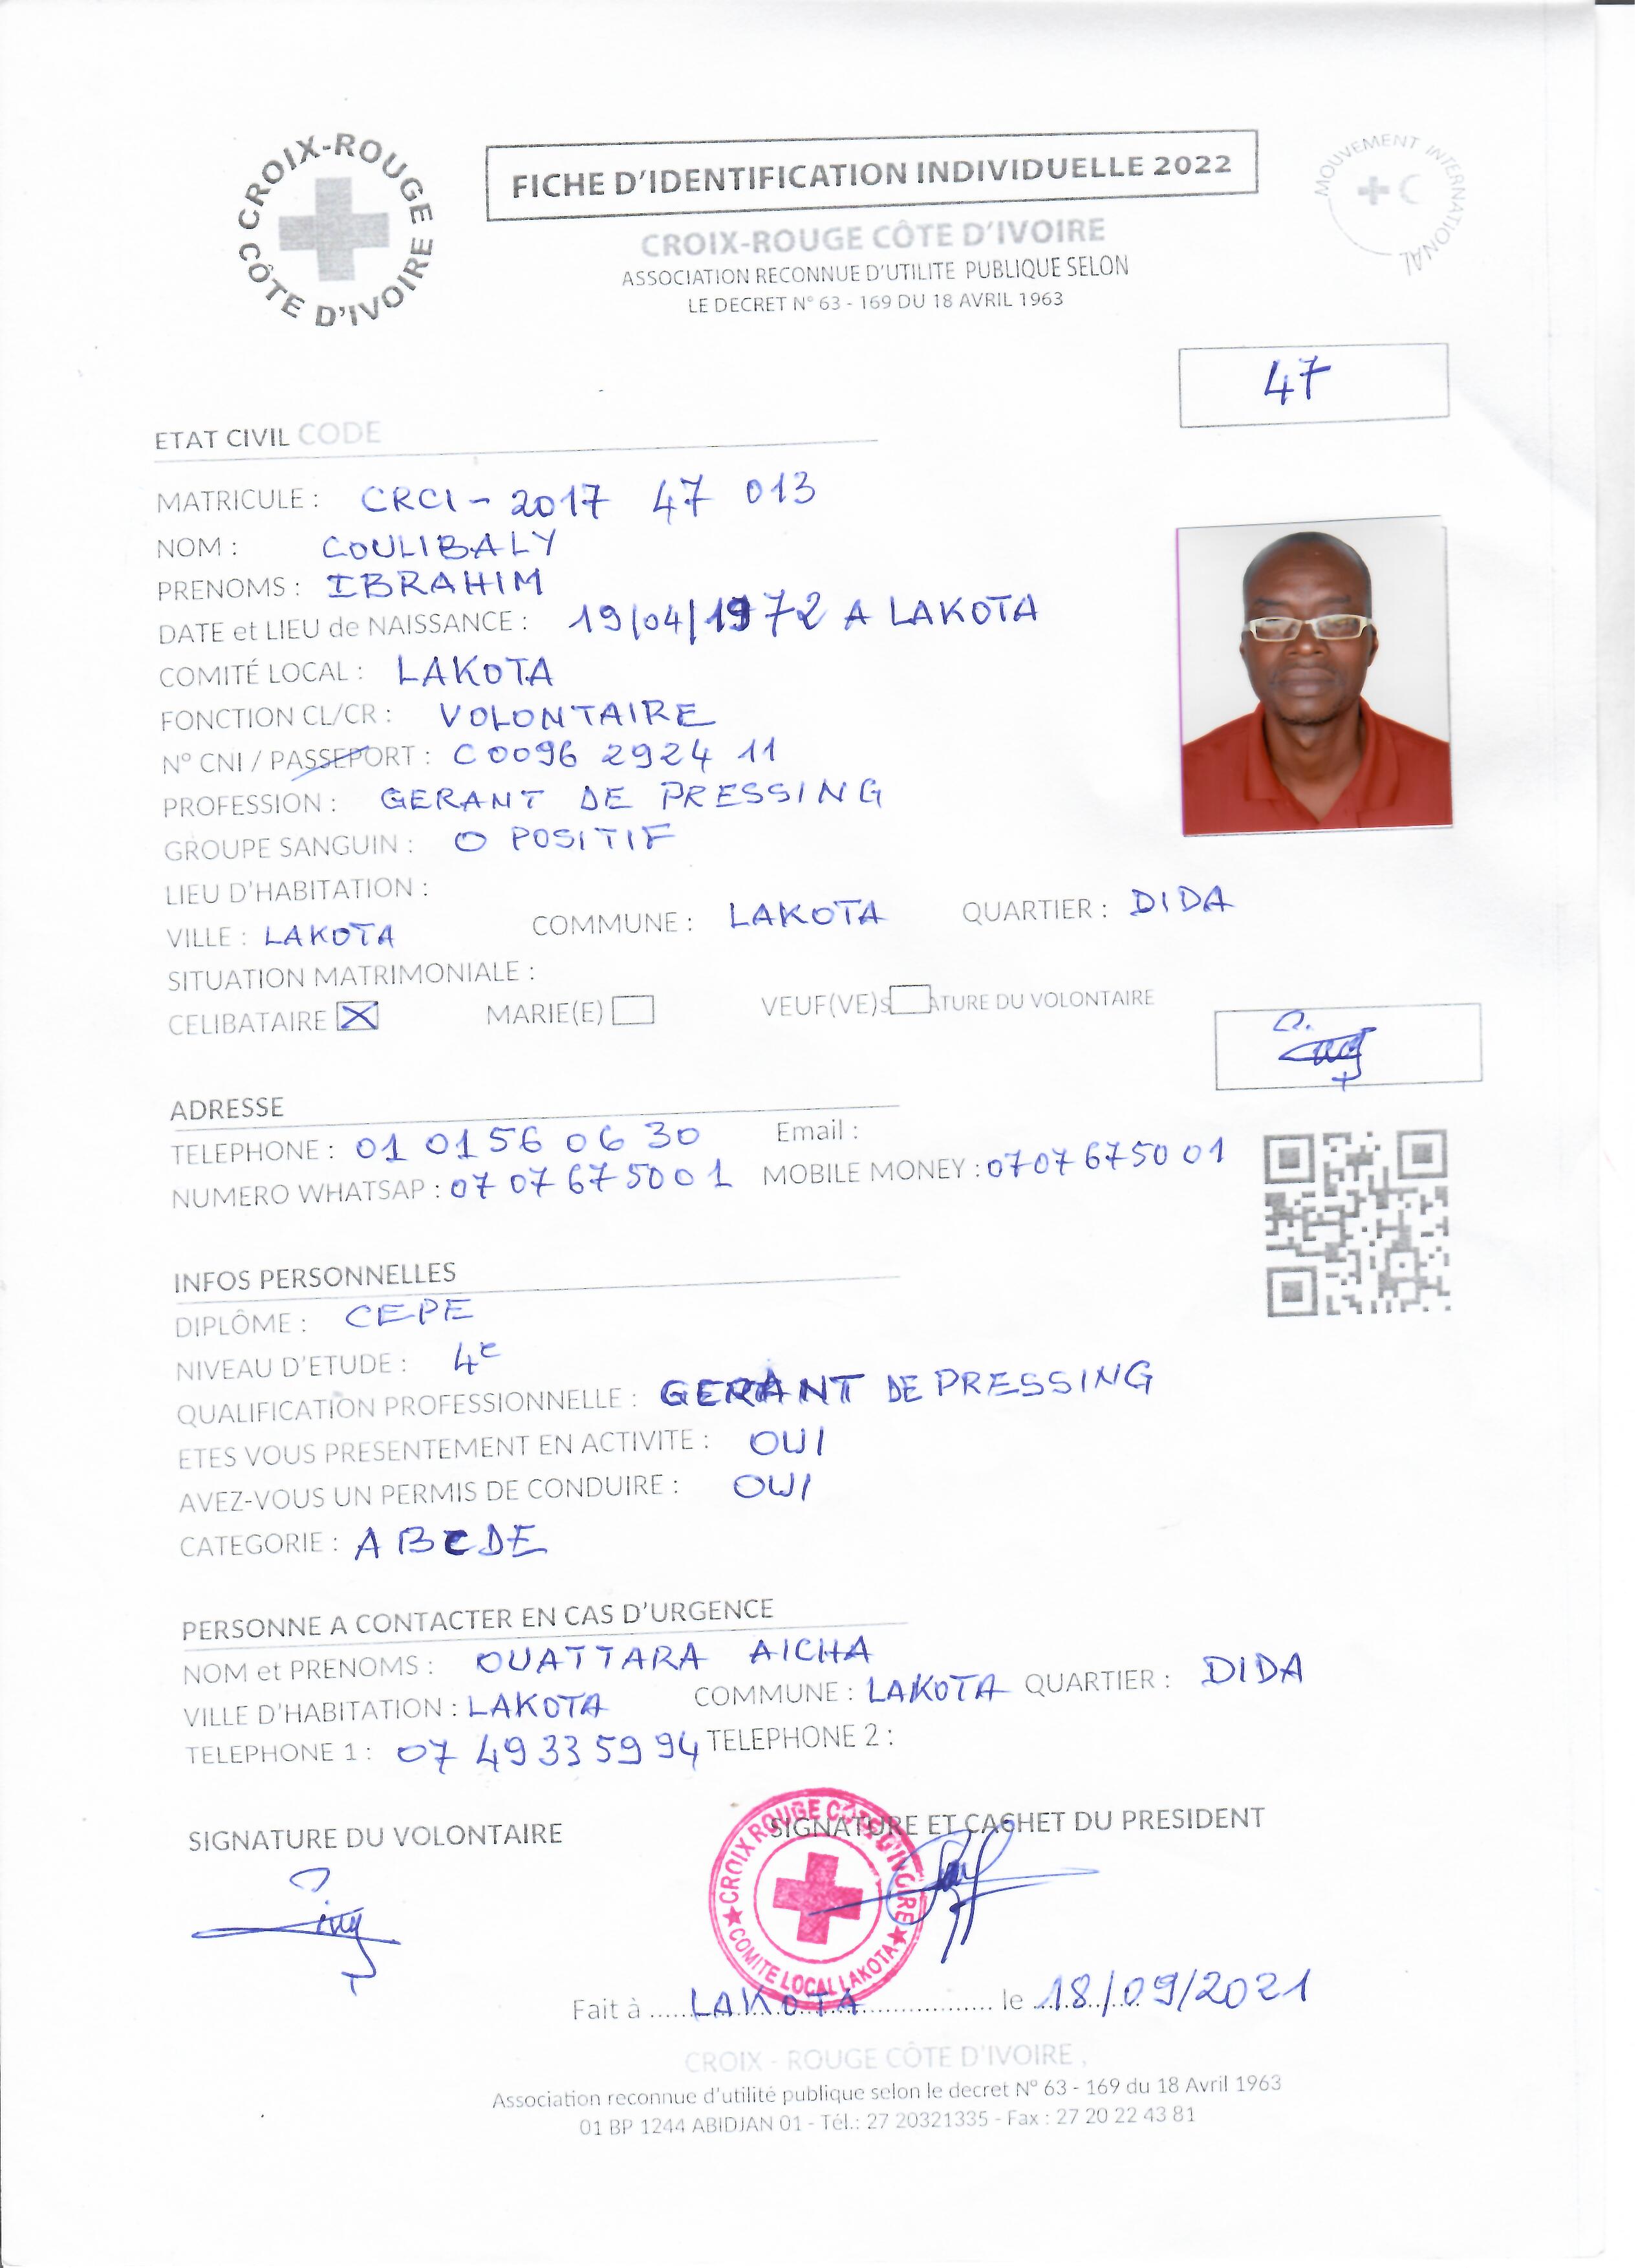 CROIX-ROUGE CÔTE D'IVOIRE
FICHE D'IDENTIFICATION INDIVIDUELLE 2022
MOUVEMENT INTERNATIONAL
CROIX-ROUGE CÔTE D'IVOIRE
ASSOCIATION RECONNUE D'UTILITE PUBLIQUE SELON
LE DECRET N° 63 - 169 DU 18 AVRIL 1963
47
ETAT CIVIL CODE
MATRICULE : CRCI - 2017 47 013
NOM : COULIBALY
PRENOMS : IBRAHIM
DATE et LIEU de NAISSANCE : 19/04/1972 A LAKOTA
COMITÉ LOCAL : LAKOTA
FONCTION CL/CR : VOLONTAIRE
N° CNI / PASSEPORT : C0096 2924 11
PROFESSION : GERANT DE PRESSING
GROUPE SANGUIN : O POSITIF
LIEU D'HABITATION :
VILLE : LAKOTA COMMUNE : LAKOTA QUARTIER : DIDA
SITUATION MATRIMONIALE :
CELIBATAIRE MARIE(E) VEUF(VE) S ATURE DU VOLONTAIRE
ADRESSE
TELEPHONE : 01 01 56 06 30 Email :
NUMERO WHATSAP : 07 07 67 50 01 MOBILE MONEY : 07 07 67 50 01
INFOS PERSONNELLES
DIPLÔME : CEPE
NIVEAU D'ETUDE : 4e
QUALIFICATION PROFESSIONNELLE : GERANT DE PRESSING
ETES VOUS PRESENTEMENT EN ACTIVITE : OUI
AVEZ-VOUS UN PERMIS DE CONDUIRE : OUI
CATEGORIE : A B C D E
PERSONNE A CONTACTER EN CAS D'URGENCE
NOM et PRENOMS : OUATTARA AICHA
VILLE D'HABITATION : LAKOTA COMMUNE : LAKOTA QUARTIER : DIDA
TELEPHONE 1 : 07 49 33 59 94 TELEPHONE 2 :
SIGNATURE DU VOLONTAIRE SIGNATURE ET CACHET DU PRESIDENT
CROIX ROUGE CÔTE D'IVOIRE
COMITE LOCAL LAKOTA
Fait à ..... LAKOTA ..... le 18/09/2021
CROIX - ROUGE CÔTE D'IVOIRE ,
Association reconnue d'utilité publique selon le decret N° 63 - 169 du 18 Avril 1963
01 BP 1244 ABIDJAN 01 - Tél.: 27 20321335 - Fax : 27 20 22 43 81